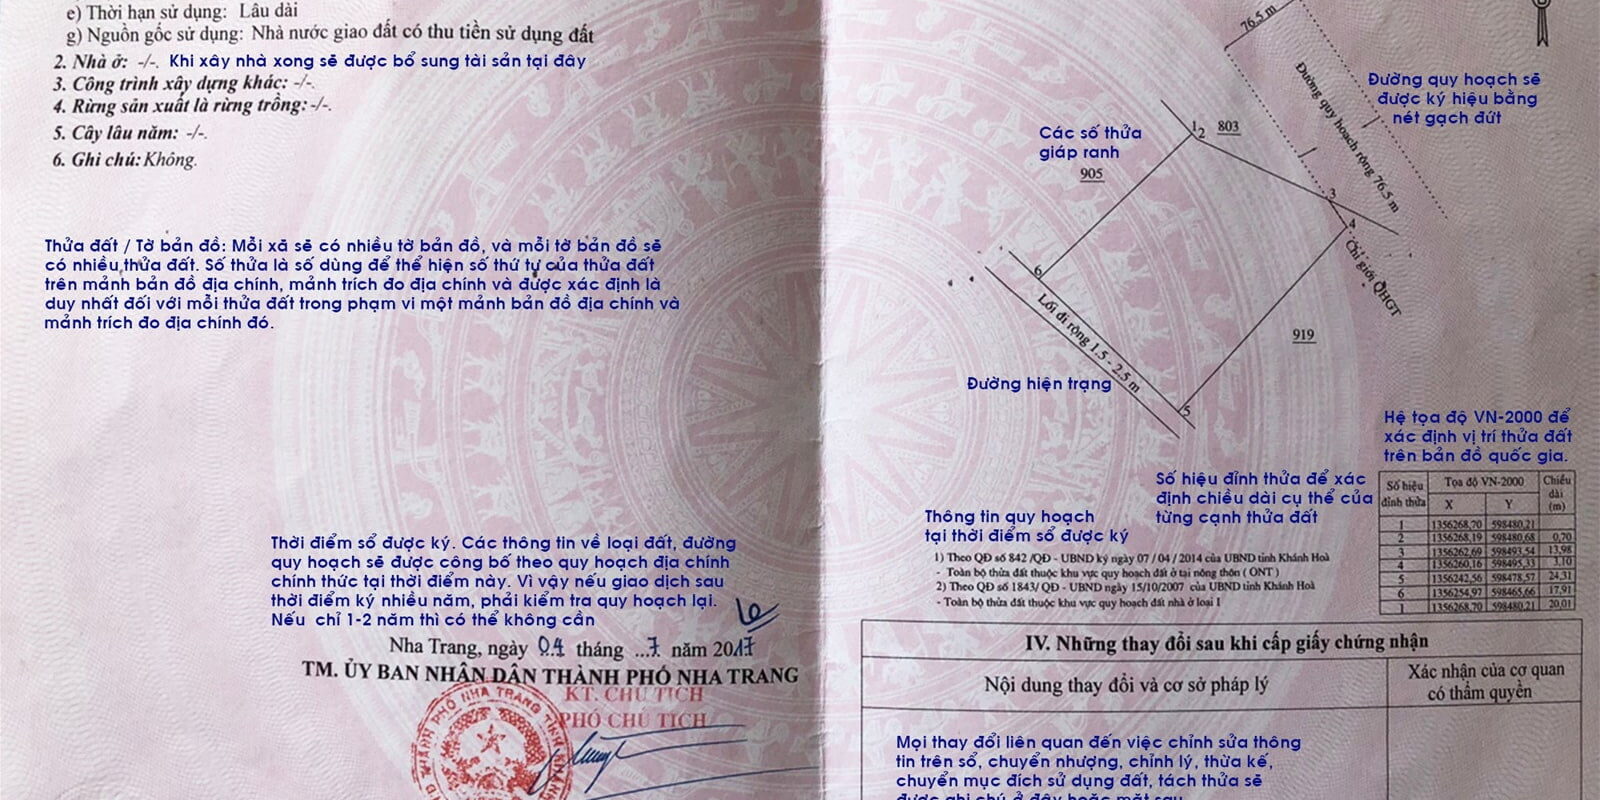 e) Thời hạn sử dụng: Lâu dài
g) Nguồn gốc sử dụng: Nhà nước giao đất có thu tiền sử dụng đất
2. Nhà ở: -/-. Khi xây nhà xong sẽ được bổ sung tài sản tại đây
3. Công trình xây dựng khác: -/-.
4. Rừng sản xuất là rừng trồng: -/-.
5. Cây lâu năm: -/-.
6. Ghi chú: Không.
Thửa đất / Tờ bản đồ: Mỗi xã sẽ có nhiều tờ bản đồ, và mỗi tờ bản đồ sẽ
có nhiều thửa đất. Số thửa là số dùng để thể hiện số thứ tự của thửa đất
trên mảnh bản đồ địa chính, mảnh trích đo địa chính và được xác định là
duy nhất đối với mỗi thửa đất trong phạm vi một mảnh bản đồ địa chính và
mảnh trích đo địa chính đó.
Thời điểm sổ được ký. Các thông tin về loại đất, đường
quy hoạch sẽ được công bố theo quy hoạch địa chính
chính thức tại thời điểm này. Vì vậy nếu giao dịch sau
thời điểm ký nhiều năm, phải kiểm tra quy hoạch lại.
Nếu chỉ 1-2 năm thì có thể không cần
Nha Trang, ngày 04 tháng ...7 năm 2017
TM. ỦY BAN NHÂN DÂN THÀNH PHỐ NHA TRANG
KT. CHỦ TỊCH
PHÓ CHỦ TỊCH
76.5 m
Đường quy hoạch rộng 76.5 m
Đường quy hoạch sẽ
được ký hiệu bằng
nét gạch đứt
Các số thửa
giáp ranh
905
1
2
803
3
4
Chỉ giới QHGT
6
Lối đi rộng 1.5 - 2.5 m
919
Đường hiện trạng
5
Hệ tọa độ VN-2000 để
xác định vị trí thửa đất
trên bản đồ quốc gia.
Số hiệu đỉnh thửa để xác
định chiều dài cụ thể của
từng cạnh thửa đất
Số hiệu đỉnh thửa Tọa độ VN-2000 Chiều dài (m)
X Y
1 1356268,70 598480,21
2 1356268,19 598480,68 0,70
3 1356262,69 598493,54 13,98
4 1356260,16 598495,33 3,10
5 1356242,56 598478,57 24,31
6 1356254,97 598465,66 17,91
1 1356268,70 598480,21 20,01
Thông tin quy hoạch
tại thời điểm sổ được ký
1) Theo QĐ số 842 /QĐ - UBND ký ngày 07 / 04 / 2014 của UBND tỉnh Khánh Hoà
- Toàn bộ thửa đất thuộc khu vực quy hoạch đất ở tại nông thôn ( ONT )
2) Theo QĐ số 1843/ QĐ - UBND ngày 15/10/2007 của UBND tỉnh Khánh Hoà
- Toàn bộ thửa đất thuộc khu vực quy hoạch đất nhà ở loại 1
IV. Những thay đổi sau khi cấp giấy chứng nhận
Nội dung thay đổi và cơ sở pháp lý
Xác nhận của cơ quan
có thẩm quyền
Mọi thay đổi liên quan đến việc chỉnh sửa thông
tin trên sổ, chuyển nhượng, chỉnh lý, thừa kế,
chuyển mục đích sử dụng đất, tách thửa sẽ
được ghi chú ở đây hoặc mặt sau